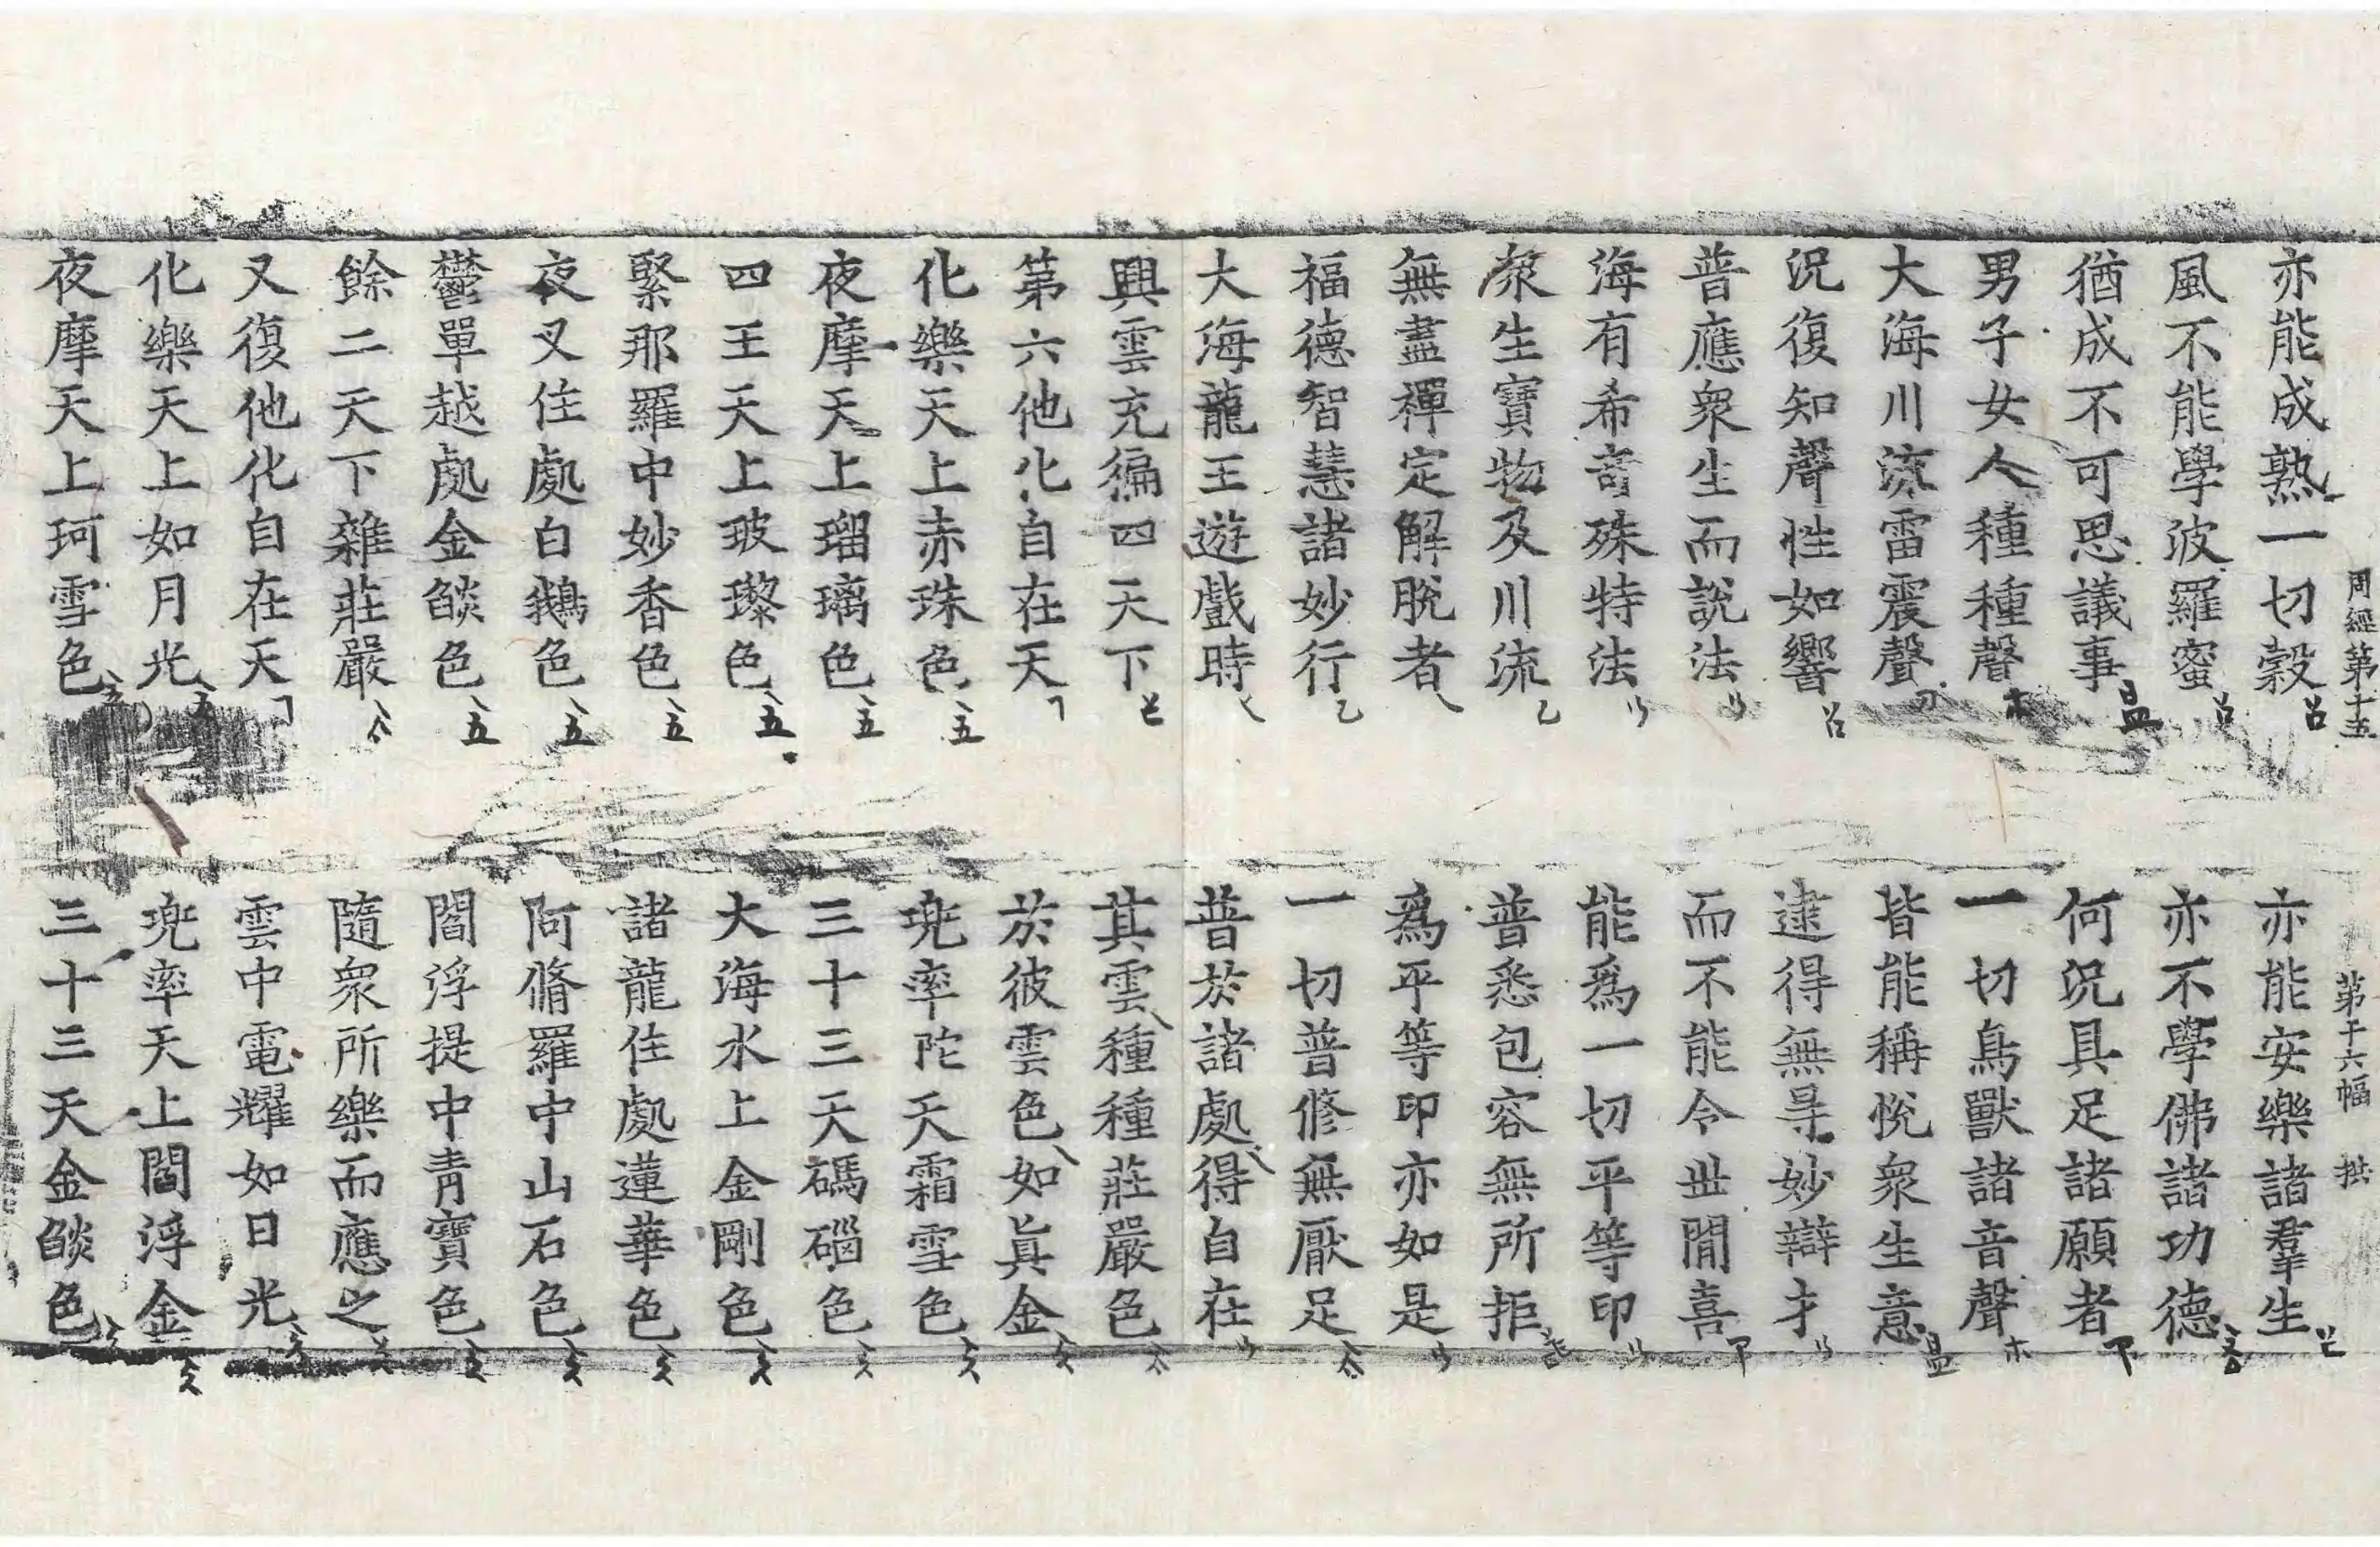 周經第十五 第十六幅 拱
亦能成熟一切穀 亦能安樂諸羣生
風不能學波羅蜜 亦不學佛諸功德
猶成不可思議事 何況具足諸願者
男子女人種種聲 一切鳥獸諸音聲
大海川流雷震聲 皆能稱悅衆生意
況復知聲性如響 逮得無㝵妙辯才
普應衆生而說法 而不能令世閒喜
海有希奇殊特法 能爲一切平等印
衆生寶物及川流 普悉包容無所拒
無盡禪定解脫者 爲平等印亦如是
福德智慧諸妙行 一切普修無厭足
大海龍王遊戲時 普於諸處得自在
興雲充徧四天下 其雲種種莊嚴色
第六他化自在天 於彼雲色如眞金
化樂天上赤珠色 兜率陀天霜雪色
夜摩天上瑠璃色 三十三天碼碯色
四王天上玻瓈色 大海水上金剛色
緊那羅中妙香色 諸龍住處蓮華色
夜叉住處白鵝色 阿脩羅中山石色
鬱單越處金燄色 閻浮提中青寶色
餘二天下雜莊嚴 隨衆所樂而應之
又復他化自在天 雲中電耀如日光
化樂天上如月光 兜率天上閻浮金
夜摩天上珂雪色 三十三天金燄色